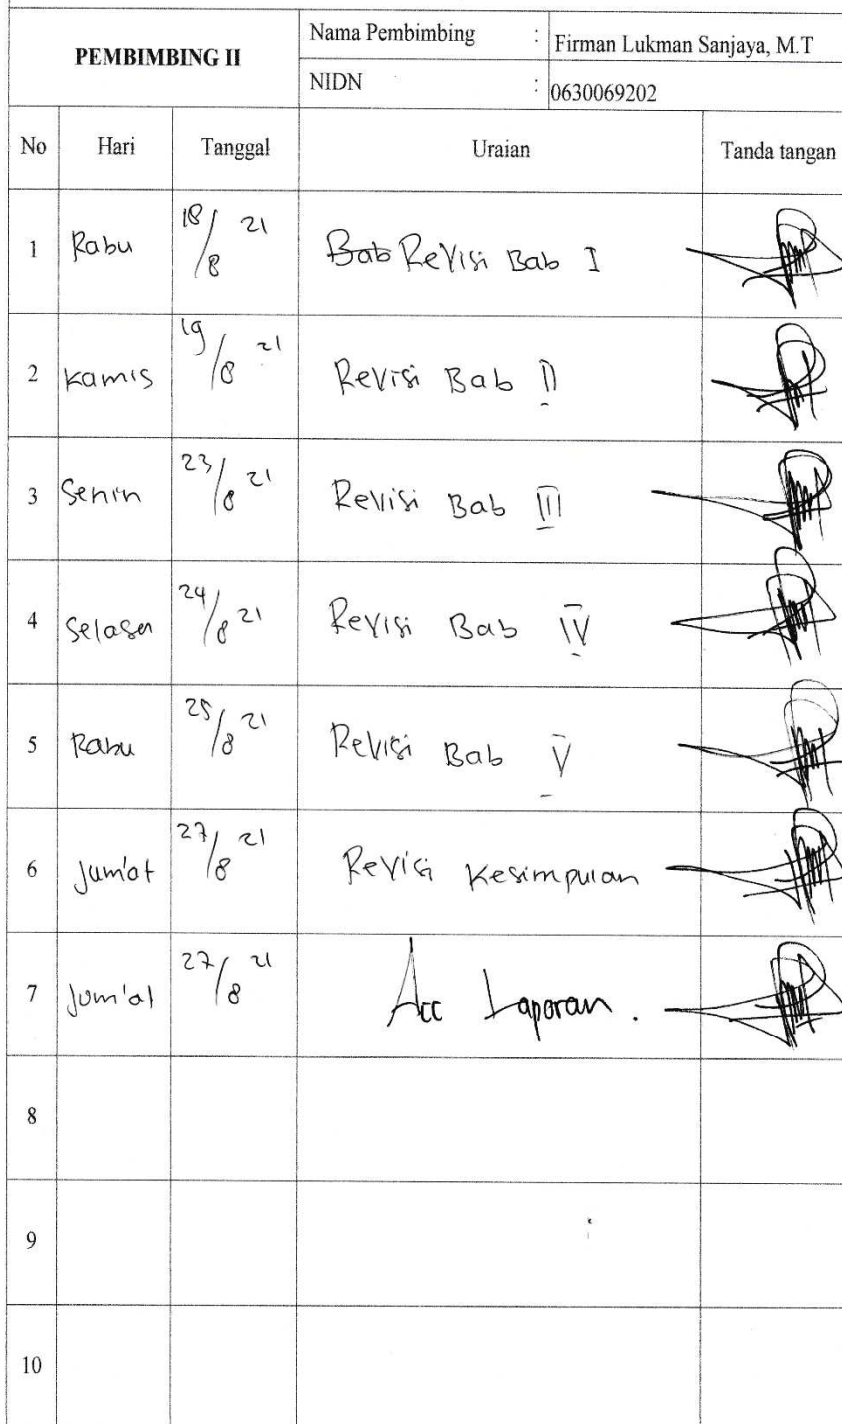 PEMBIMBING II
Nama Pembimbing : Firman Lukman Sanjaya, M.T
NIDN : 0630069202
No Hari Tanggal Uraian Tanda tangan
1 Rabu 18/8 21 Bab Revisi Bab I
2 Kamis 19/8 21 Revisi Bab II
3 Senin 23/8 21 Revisi Bab III
4 Selasa 24/8 21 Revisi Bab IV
5 Rabu 25/8 21 Revisi Bab V
6 Jum'at 27/8 21 Revisi Kesimpulan
7 Jum'at 27/8 21 Acc Laporan.
8
9
10